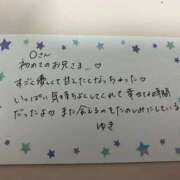 Oさん
初めてのお兄さま…♡
すごく優しくて甘えたくなっちゃった♡
いっぱい気持ちよくしてくれて幸せな時間
だったよ♡ また会えるのをたのしみにしているね
ゆき